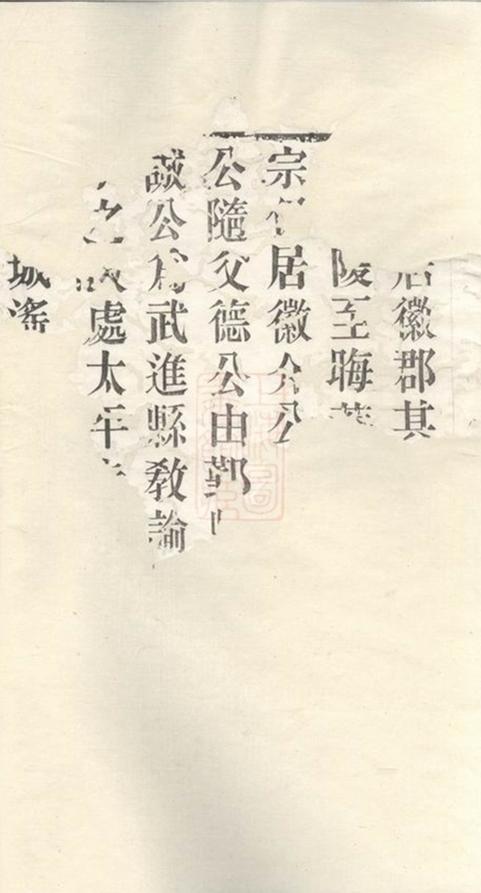 居徽郡其
陵至晦
宗居徽公
公隨父德公由鄞
誠公為武進縣教諭
之處太平
城滛